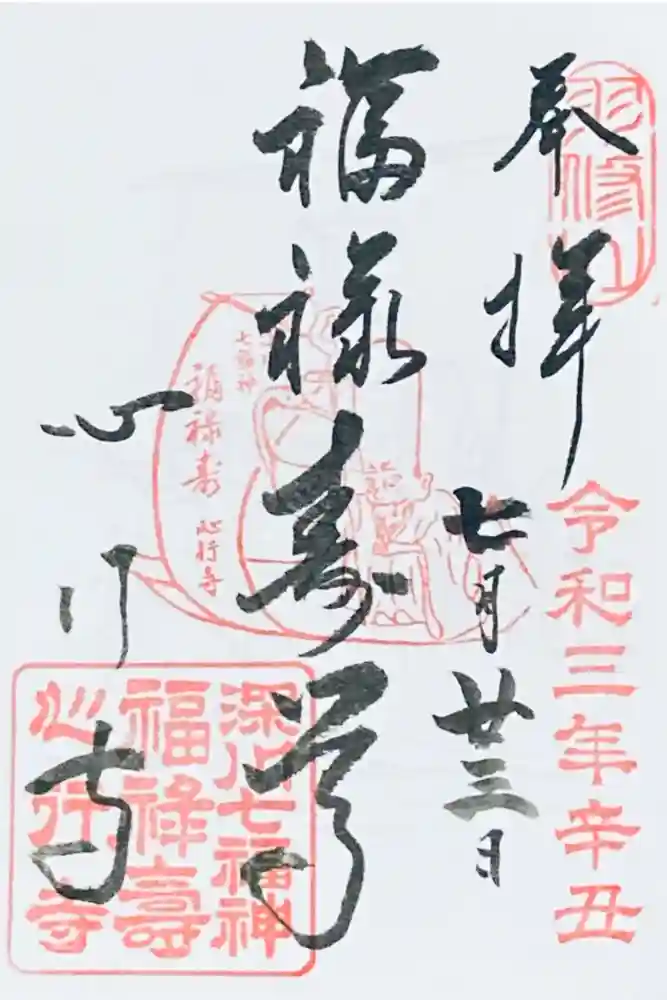 奉拝
令和三年辛丑
七月廿三日
福禄寿尊
心行寺
七福神
福禄寿
心行寺
深川七福神
福禄壽
心行寺